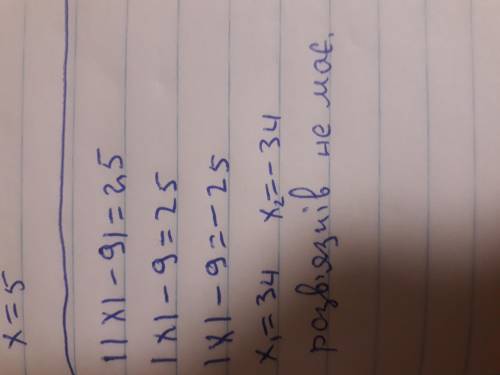 x = 5
||x| - 9| = 25
|x| - 9 = 25
|x| - 9 = - 25
x₁ = 34 x₂ = - 34
розв'язків не має.